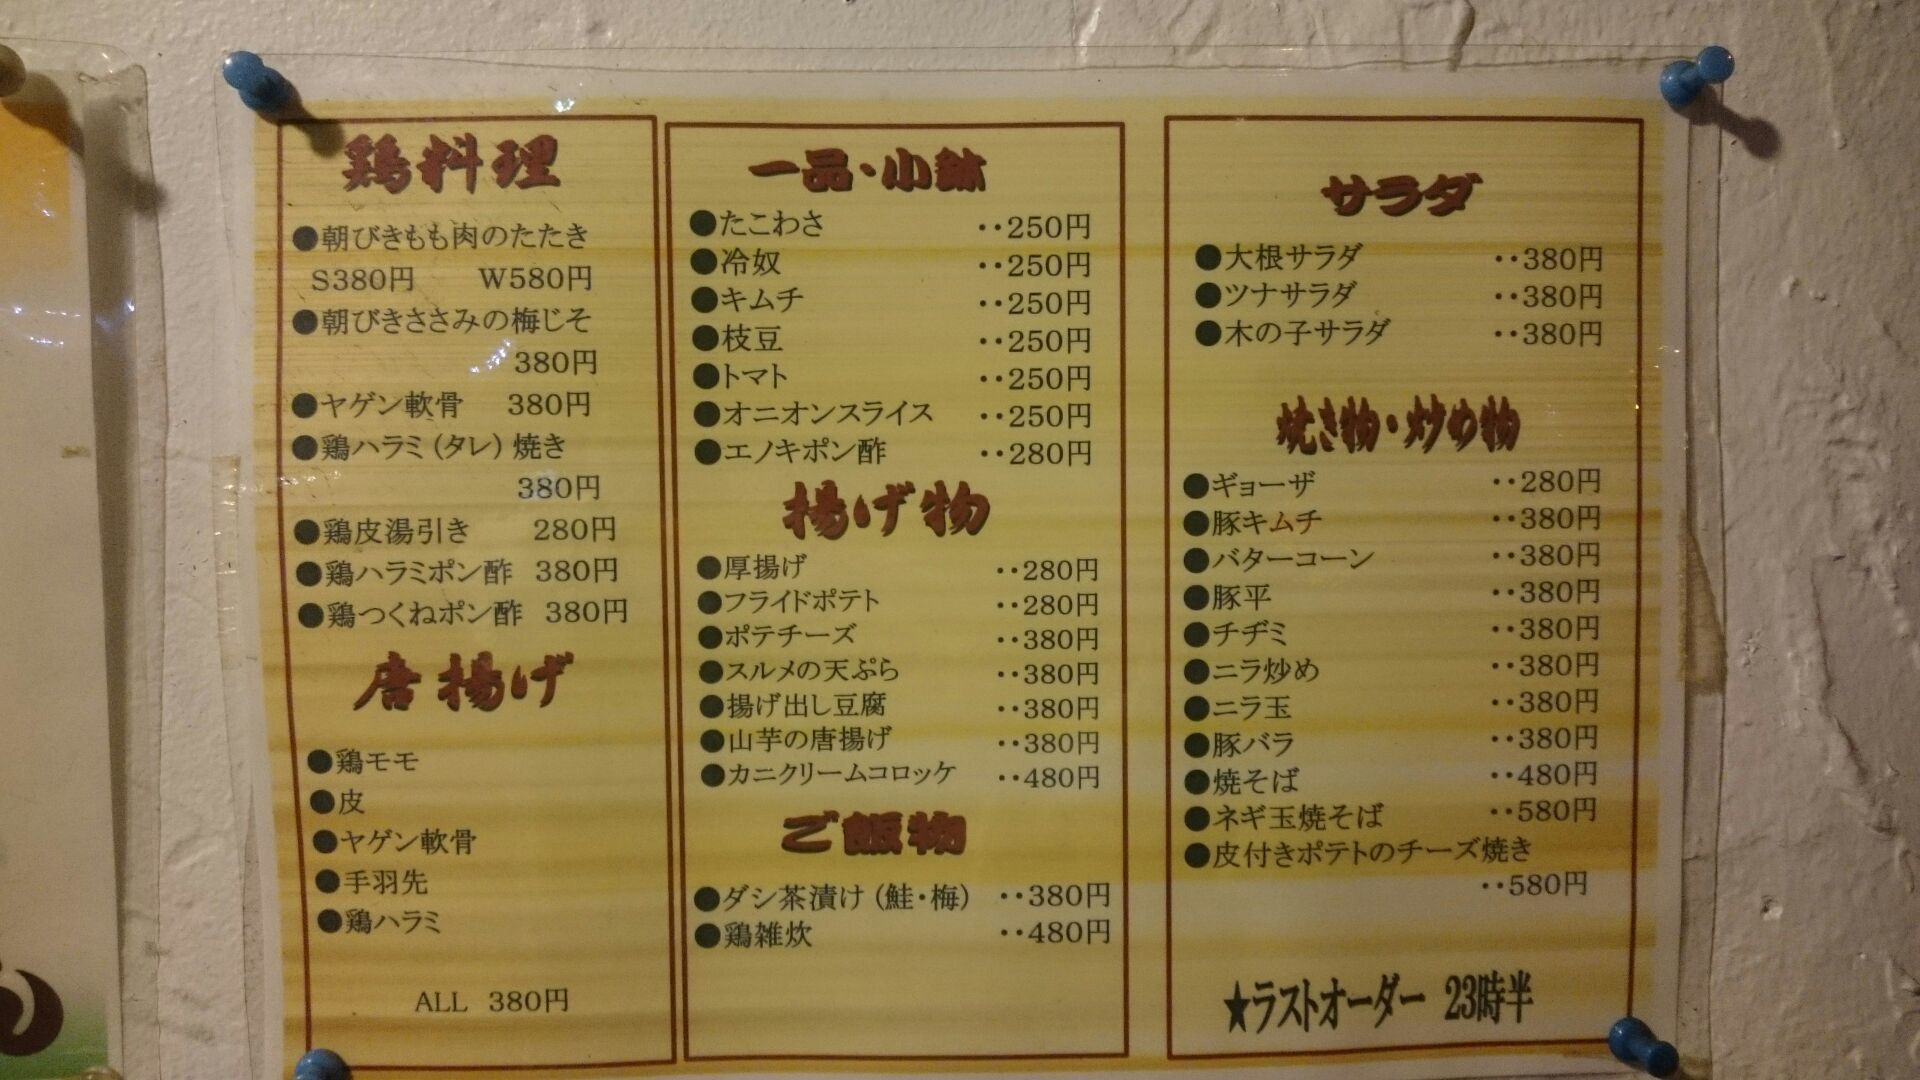 鶏料理
●朝びきもも肉のたたき
S380円 W580円
●朝びきささみの梅じそ
380円
●ヤゲン軟骨 380円
●鶏ハラミ(タレ)焼き
380円
●鶏皮湯引き 280円
●鶏ハラミポン酢 380円
●鶏つくねポン酢 380円
唐揚げ
●鶏モモ
●皮
●ヤゲン軟骨
●手羽先
●鶏ハラミ
ALL 380円
一品・小鉢
●たこわさ ‥250円
●冷奴 ‥250円
●キムチ ‥250円
●枝豆 ‥250円
●トマト ‥250円
●オニオンスライス ‥250円
●エノキポン酢 ‥280円
揚げ物
●厚揚げ ‥280円
●フライドポテト ‥280円
●ポテチーズ ‥380円
●スルメの天ぷら ‥380円
●揚げ出し豆腐 ‥380円
●山芋の唐揚げ ‥380円
●カニクリームコロッケ ‥480円
ご飯物
●ダシ茶漬け(鮭・梅) ‥380円
●鶏雑炊 ‥480円
サラダ
●大根サラダ ‥380円
●ツナサラダ ‥380円
●木の子サラダ ‥380円
焼き物・炒め物
●ギョーザ ‥280円
●豚キムチ ‥380円
●バターコーン ‥380円
●豚平 ‥380円
●チヂミ ‥380円
●ニラ炒め ‥380円
●ニラ玉 ‥380円
●豚バラ ‥380円
●焼そば ‥480円
●ネギ玉焼そば ‥580円
●皮付きポテトのチーズ焼き
‥580円
★ラストオーダー 23時半